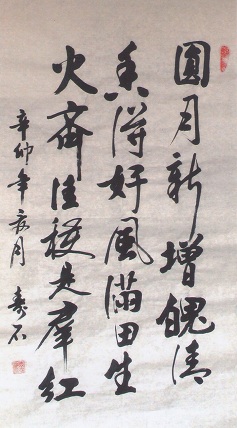 圓月新增魄清
香溶好風滿田生
火齊佳積是群紅
辛卯年 月
壽石